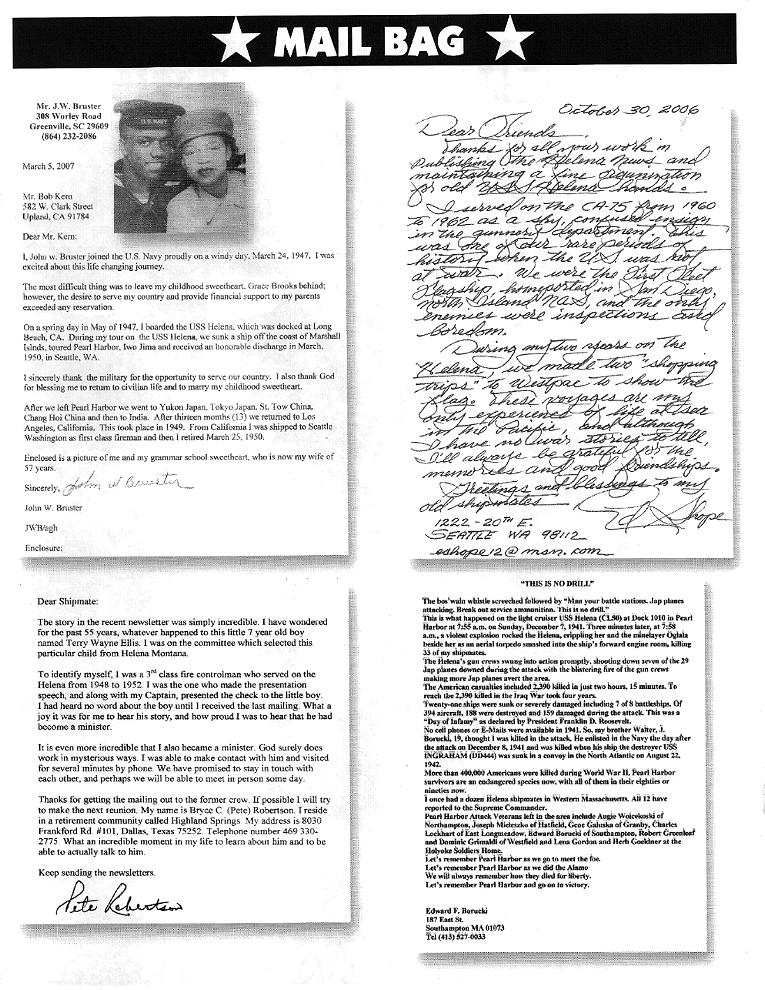 MAIL BAG
Mr. J.W. Bruster
308 Worley Road
Greenville, SC 29609
(864) 232-2086
U.S. NAVY
March 5, 2007
Mr. Bob Kern
582 W. Clark Street
Upland, CA 91784
Dear Mr. Kern:
I, John w. Bruster joined the U.S. Navy proudly on a windy day. March 24, 1947. I was
excited about this life changing journey.
The most difficult thing was to leave my childhood sweetheart. Grace Brooks behind;
however, the desire to serve my country and provide financial support to my parents
exceeded any reservation.
On a spring day in May of 1947, I boarded the USS Helena, which was docked at Long
Beach, CA. During my tour on the USS Helena, we sunk a ship off the coast of Marshall
Islands, toured Pearl Harbor, Iwo Jima and received an honorable discharge in March,
1950, in Seattle, WA.
I sincerely thank the military for the opportunity to serve our country. I also thank God
for blessing me to return to civilian life and to marry my childhood sweetheart.
After we left Pearl Harbor we went to Yukon Japan, Tokyo Japan, St. Tow China,
Chang Hoi China and then to India. After thirteen months (13) we returned to Los
Angeles, California. This took place in 1949. From California I was shipped to Seattle
Washington as first class fireman and then I retired March 25, 1950.
Enclosed is a picture of me and my grammar school sweetheart, who is now my wife of
57 years.
Sincerely, John W Bruster
John W. Bruster
JWB/agh
Enclosure:
October 30, 2006
Dear Friends,
Thanks for all your work in
publishing the Helena News and
maintaining a fine organization
for old USS Helena hands.
I served on the CA-75 from 1960
to 1962 as a shy, confused ensign
in the gunnery department. This
was one of our rare periods of
history when the US was not
at war. We were the First Fleet
Flagship, homeported in San Diego,
North Island NAS, and the only
enemies were inspections and
boredom.
During my two years on the
Helena, we made two "shopping
trips" to Westpac to show the
flag. These voyages are my
only experience of life at sea
in the Pacific, and although
I have no war stories to tell,
I'll always be grateful for the
memories and good friendships.
Greetings and blessings to my
old shipmates
Ed Shope
1222 - 20TH E.
SEATTLE WA 98112
eshope12@msn.com
Dear Shipmate:
The story in the recent newsletter was simply incredible. I have wondered
for the past 55 years, whatever happened to this little 7 year old boy
named Terry Wayne Ellis. I was on the committee which selected this
particular child from Helena Montana.
To identify myself, I was a 3rd class fire controlman who served on the
Helena from 1948 to 1952. I was the one who made the presentation
speech, and along with my Captain, presented the check to the little boy.
I had heard no word about the boy until I received the last mailing. What a
joy it was for me to hear his story, and how proud I was to hear that he had
become a minister.
It is even more incredible that I also became a minister. God surely does
work in mysterious ways. I was able to make contact with him and visited
for several minutes by phone. We have promised to stay in touch with
each other, and perhaps we will be able to meet in person some day.
Thanks for getting the mailing out to the former crew. If possible I will try
to make the next reunion. My name is Bryce C. (Pete) Robertson. I reside
in a retirement community called Highland Springs. My address is 8030
Frankford Rd. #101, Dallas, Texas 75252. Telephone number 469 330-
2775. What an incredible moment in my life to learn about him and to be
able to actually talk to him.
Keep sending the newsletters.
Pete Robertson
"THIS IS NO DRILL"
The bos'wain whistle screeched followed by "Man your battle stations. Jap planes
attacking. Break out service ammunition. This is no drill."
This is what happened on the light cruiser USS Helena (CL50) at Dock 1010 in Pearl
Harbor at 7:55 a.m. on Sunday, December 7, 1941. Three minutes later, at 7:58
a.m., a violent explosion rocked the Helena, crippling her and the minelayer Oglala
beside her as an aerial torpedo smashed into the ship's forward engine room, killing
33 of my shipmates.
The Helena's gun crews swung into action promptly, shooting down seven of the 29
Jap planes downed during the attack with the blistering fire of the gun crews
making more Jap planes avert the area.
The American casualties included 2,390 killed in just two hours, 15 minutes. To
reach the 2,390 killed in the Iraq War took four years.
Twenty-one ships were sunk or severely damaged including 7 of 8 battleships. Of
394 aircraft, 188 were destroyed and 159 damaged during the attack. This was a
"Day of Infamy" as declared by President Franklin D. Roosevelt.
No cell phones or E-Mails were available in 1941. So, my brother Walter, J.
Borucki, 19, thought I was killed in the attack. He enlisted in the Navy the day after
the attack on December 8, 1941 and was killed when his ship the destroyer USS
INGRAHAM (DD444) was sunk in a convoy in the North Atlantic on August 22,
1942.
More than 400,000 Americans were killed during World War II. Pearl Harbor
survivors are an endangered species now, with all of them in their eighties or
nineties now.
I once had a dozen Helena shipmates in Western Massachusetts. All 12 have
reported to the Supreme Commander.
Pearl Harbor Attack Veterans left in the area include Augie Woicekoski of
Northampton, Joseph Mieleszko of Hatfield, Gene Galuska of Granby, Charles
Lockhart of East Longmeadow, Edward Borucki of Southampton, Robert Greenleaf
and Dominic Grimaldi of Westfield and Lena Gordon and Herb Goeldner at the
Holyoke Soldiers Home.
Let's remember Pearl Harbor as we go to meet the foe.
Let's remember Pearl Harbor as we did the Alamo
We will always remember how they died for liberty.
Let's remember Pearl Harbor and go on to victory.
Edward F. Borucki
187 East St.
Southampton MA 01073
Tel (413) 527-0033